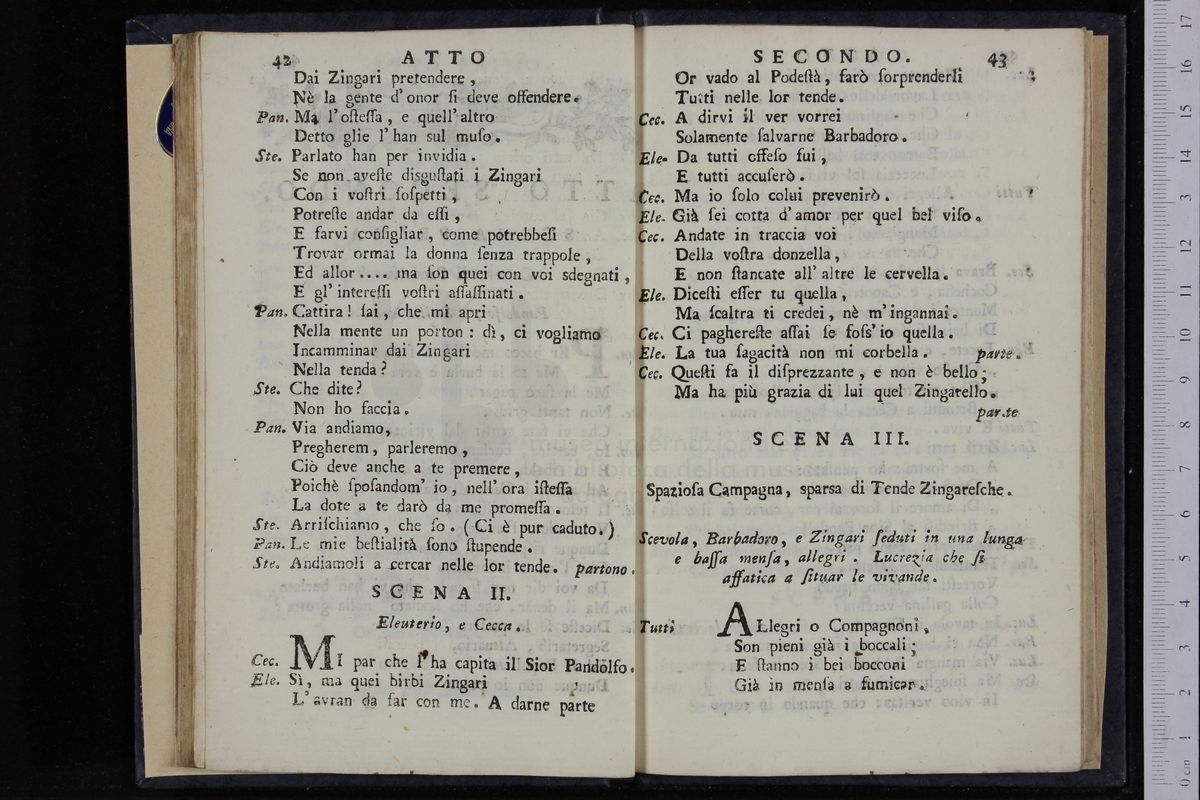 42 ATTO
Dai Zingari pretendere,
Nè la gente d'onor ſi deve offendere.
Pan. Ma l'oſteſſa, e quell'altro
Detto glie l'han sul muſo.
Ste. Parlato han per invidia.
Se non aveſte disguſtati i Zingari
Con i voſtri ſoſpetti,
Potreſte andar da eſſi,
E farvi conſigliar, come potrebbeſi
Trovar ormai la donna ſenza trappole,
Ed allor.... ma ſon quei con voi sdegnati,
E gl'intereſſi voſtri aſſaſſinati.
Pan. Cattira! ſai, che mi apri
Nella mente un porton: dì, ci vogliamo
Incamminar dai Zingari
Nella tenda?
Ste. Che dite?
Non ho faccia.
Pan. Via andiamo,
Pregherem, parleremo,
Ciò deve anche a te premere,
Poichè ſpoſandom' io, nell'ora iſteſſa
La dote a te darò da me promeſſa.
Ste. Arriſchiamo, che ſo. (Ci è pur caduto.)
Pan. Le mie beſtialità ſono ſtupende.
Ste. Andiamoli a cercar nelle lor tende. partono.
SCENA II.
Eleuterio, e Cecca.
Cec. MI par che l'ha capita il Sior Pandolfo.
Ele. Sì, ma quei birbi Zingari
L'avran da far con me. A darne parte
SECONDO. 43
Or vado al Podeſtà, farò ſorprenderli
Tutti nelle lor tende.
Cec. A dirvi il ver vorrei
Solamente ſalvarne Barbadoro.
Ele. Da tutti offeſo fui,
E tutti accuſerò.
Cec. Ma io ſolo colui prevenirò.
Ele. Già ſei cotta d'amor per quel bel viſo.
Cec. Andate in traccia voi
Della voſtra donzella,
E non ſtancate all'altre le cervella.
Ele. Diceſti eſſer tu quella,
Ma ſcaltra ti credei, nè m'ingannai.
Cec. Ci paghereſte aſſai ſe foſs'io quella.
Ele. La tua ſagacità non mi corbella. parte.
Cec. Queſti fa il diſprezzante, e non è bello;
Ma ha più grazia di lui quel Zingarello.
parte
SCENA III.
Spazioſa Campagna, sparsa di Tende Zingareſche.
Scevola, Barbadoro, e Zingari ſeduti in una lunga
e baſſa menſa, allegri. Lucrezia che ſi
affatica a ſituar le vivande.
Tutti ALlegri o Compagnoni,
Son pieni già i boccali;
E ſtanno i bei bocconi
Già in menſa a fumicar.